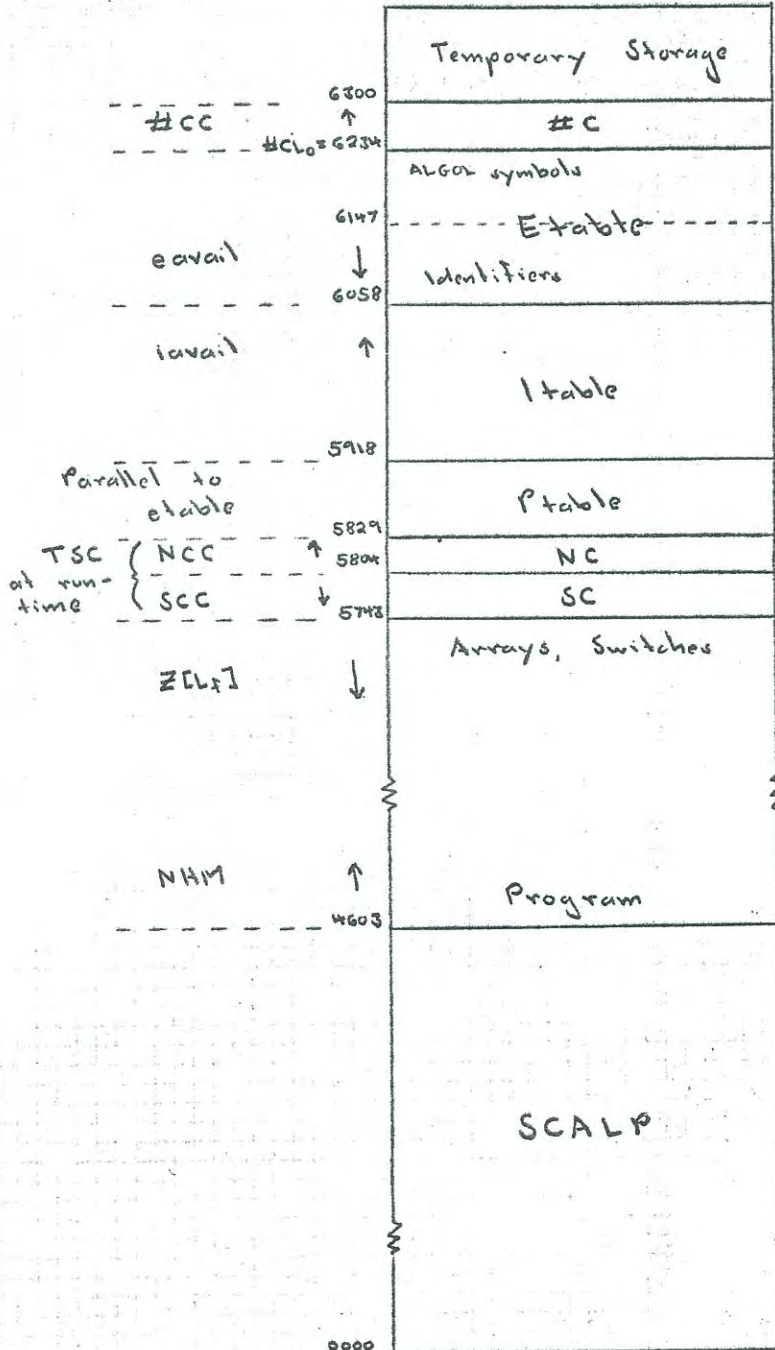 Temporary Storage
6300
#CC ↑ #C
#CL₀=6234
ALGOL symbols
6147
Etable
eavail ↓
Identifiers
6058
iavail ↑
Itable
5918
Parallel to
etable
Ptable
5829
TSC { NCC ↑ NC
5804
at run-
time
SCC ↓ SC
5743
Arrays, Switches
Z[Lf] ↓
NHM ↑
Program
4603
SCALP
0000